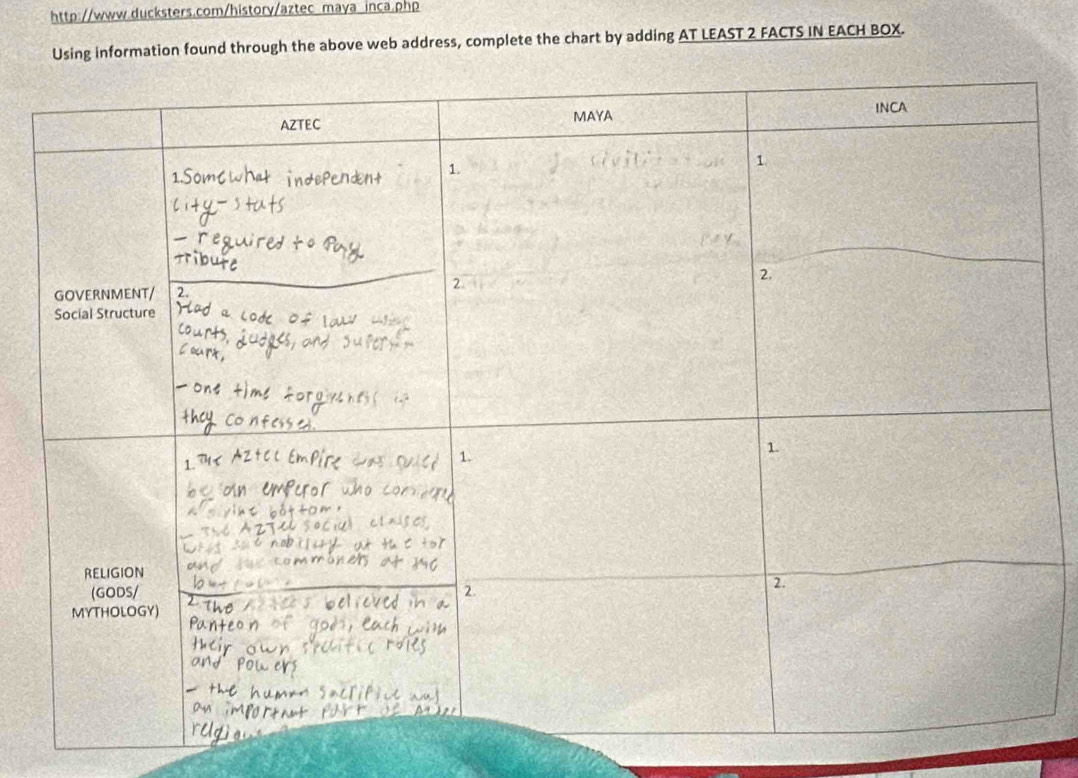 http://www.ducksters.com/history/aztec_maya_inca.php
Using information found through the above web address, complete the chart by adding AT LEAST 2 FACTS IN EACH BOX.
AZTEC
MAYA
INCA
GOVERNMENT/
Social Structure
1. Somewhat independent
city-stats
- required to Pay
Tribute
2.
Had a code of law
courts, judges, and
court,
- one time forgiveness if
they confesse
1.
2.
1.
2.
RELIGION
(GODS/
MYTHOLOGY)
1. The Aztec Empire was
an emperor who
bottom.
- The social classes
nobility at the top
and commoners at the
2. The believed in a
Panteon of gods, each with
their own specific roles
and powers
- the human sacrifice was
an important part of
1.
2.
1.
2.